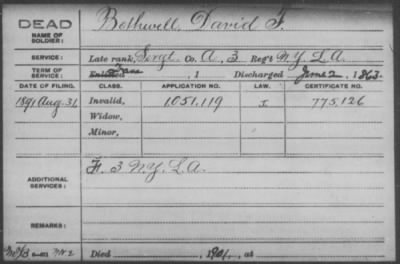 DEAD
NAME OF SOLDIER: Bothwell, David F.
SERVICE: Late rank, Sergt Co. A, 3 Reg't N.Y. L.A.
TERM OF SERVICE: Enlisted Trans , 1 Discharged June 2, 1863.
DATE OF FILING. CLASS. APPLICATION NO. LAW. CERTIFICATE NO.
1891 Aug. 31 Invalid, 1.051.119 I 775.126
Widow,
Minor,
ADDITIONAL SERVICES: F. 3 N.Y. L.A.
REMARKS:
Died , 1901, at